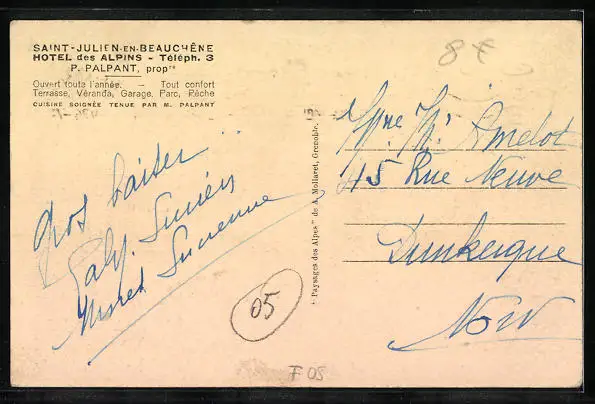 SAINT-JULIEN-EN-BEAUCHÊNE
HOTEL des ALPINS - Téléph. 3
P. PALPANT, propre
Ouvert toute l'année. — Tout confort
Terrasse, Véranda, Garage, Parc, Pêche
CUISINE SOIGNÉE TENUE PAR M. PALPANT
8 €
Nos baiser
"Paysages des Alpes" de A. Mollaret, Grenoble.
Amelot
45 Rue Neuve
Dunkerque
Nord
05
F 05